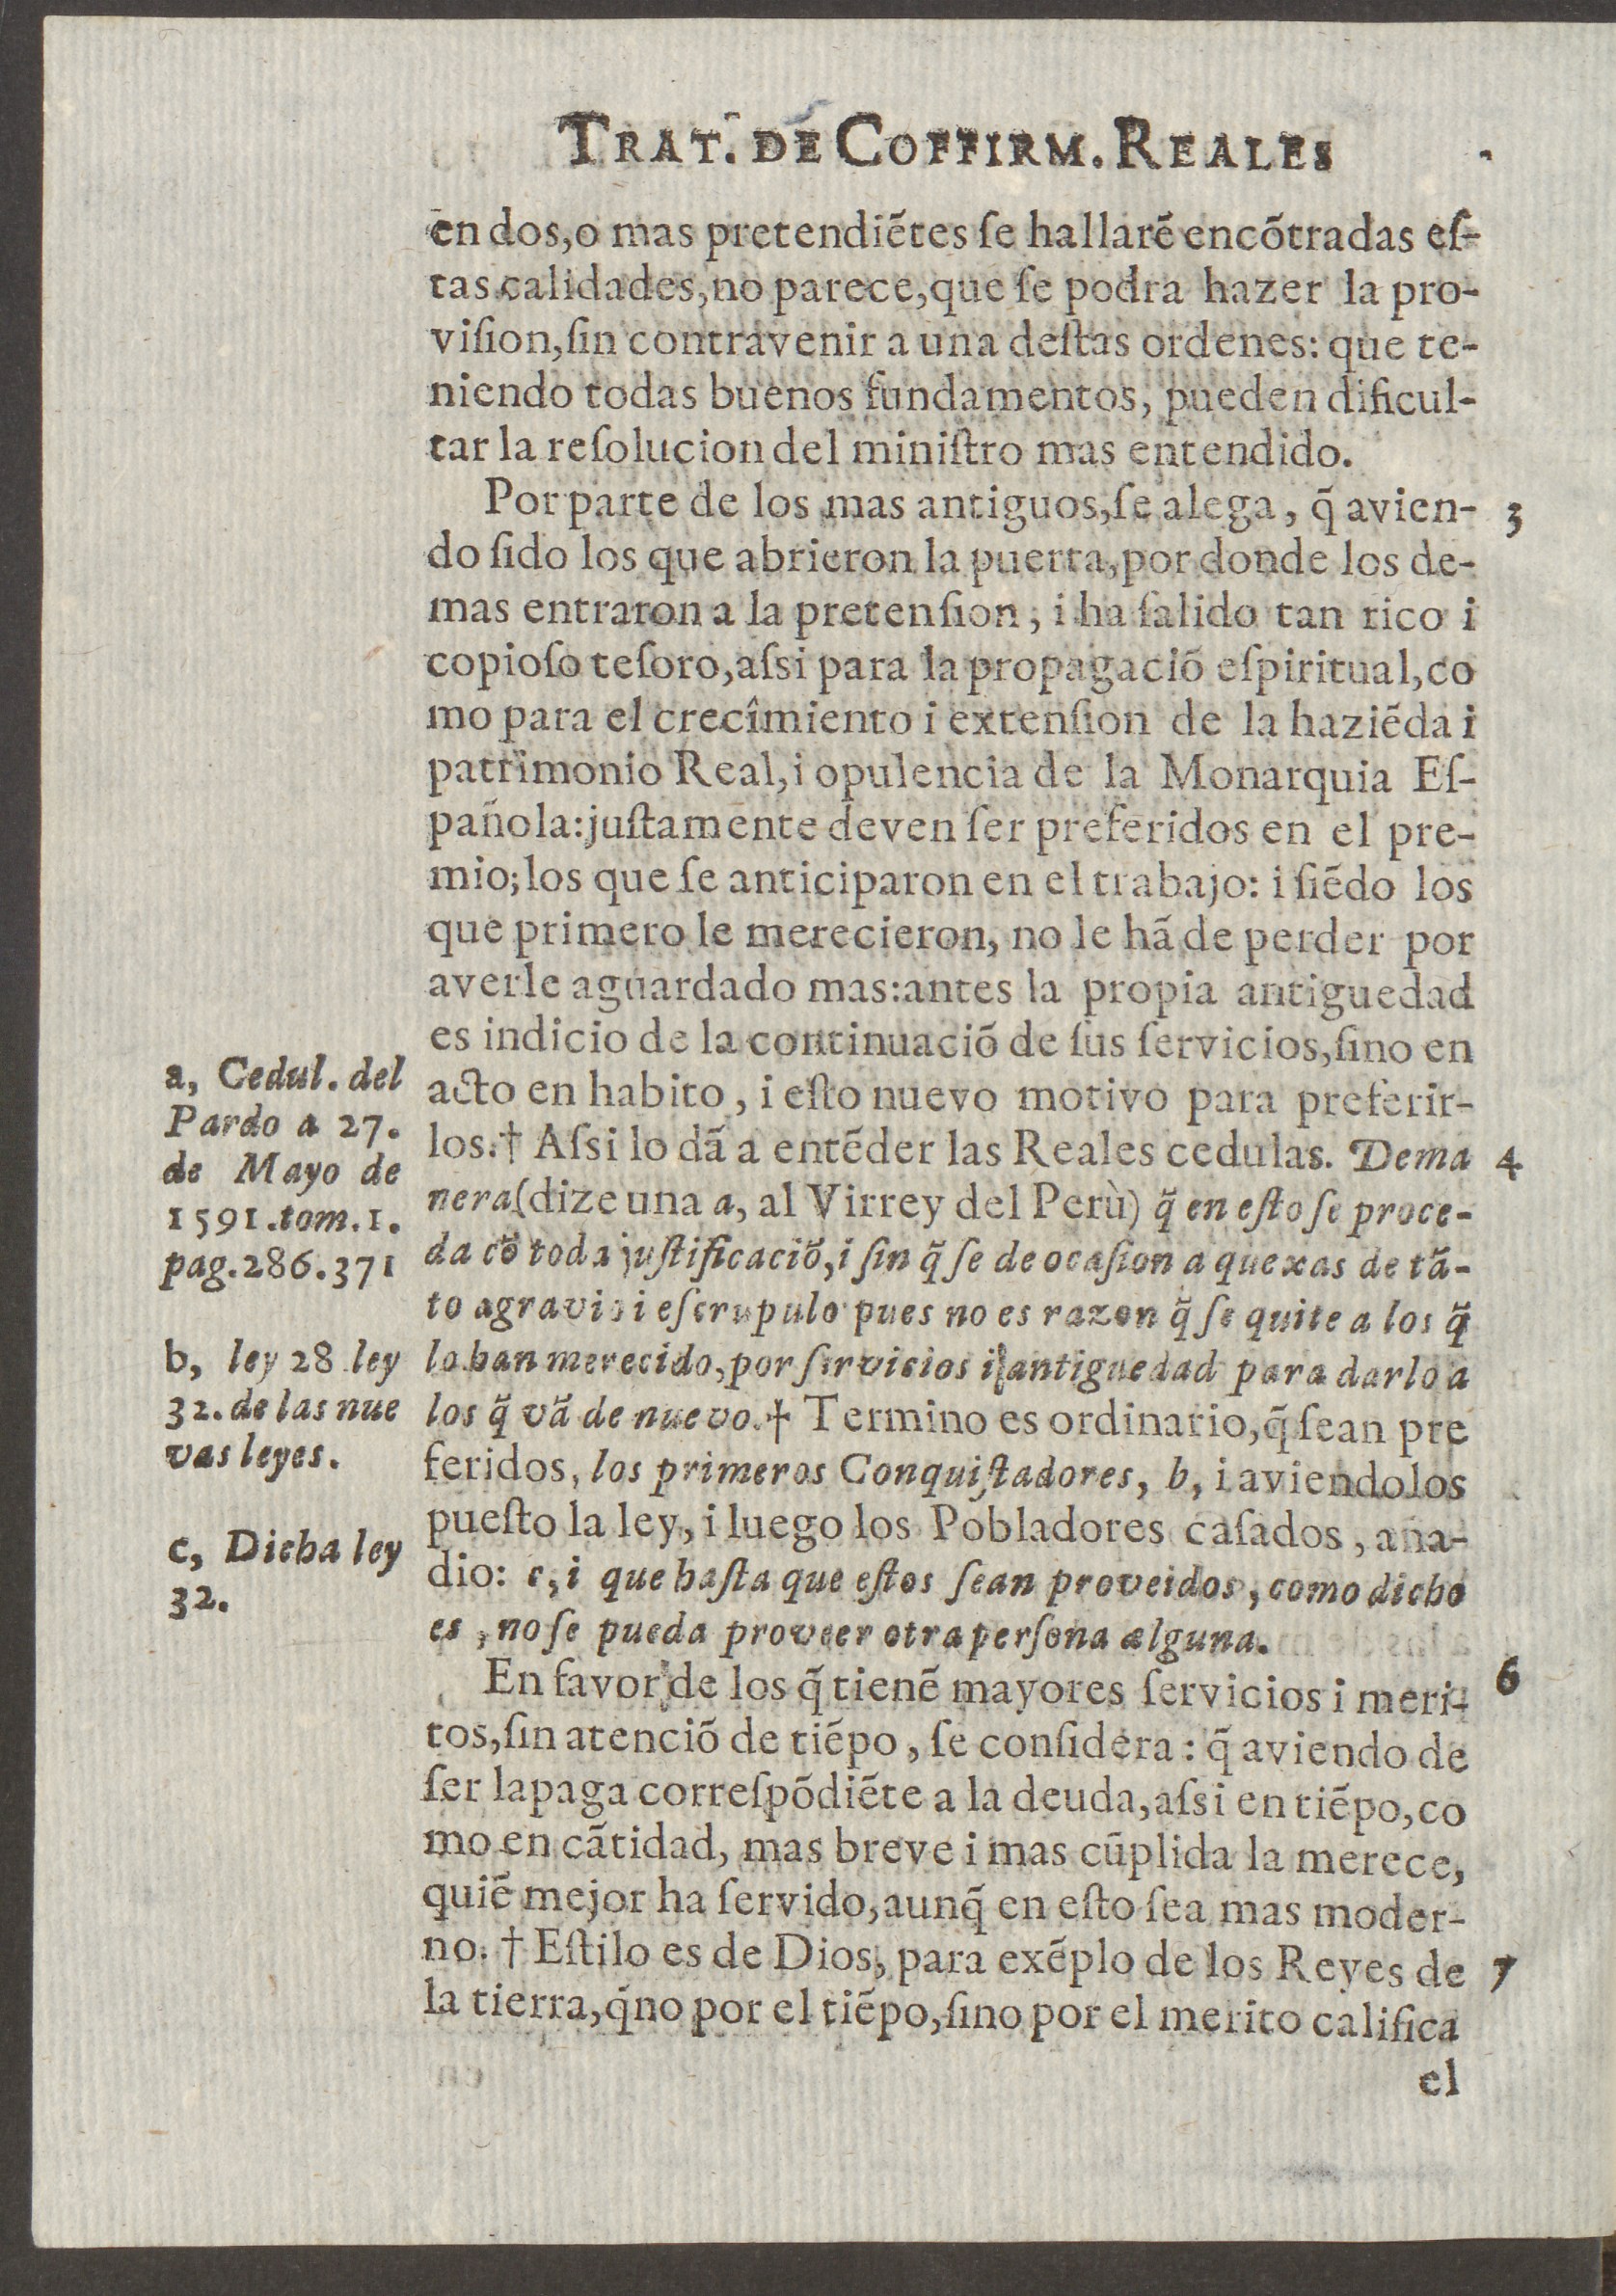 TRAT. DE COFFIRM. REALES
en dos, o mas pretendiẽtes ſe hallarẽ encõtradas eſ-
tas calidades, no parece, que ſe podra hazer la pro-
viſion, ſin contravenir a una deſtas ordenes: que te-
niendo todas buenos fundamentos, pueden dificul-
tar la reſolucion del miniſtro mas entendido.
Por parte de los mas antiguos, ſe alega, q̃ avien- 3
do ſido los que abrieron la puerta, por donde los de-
mas entraron a la pretenſion; i ha ſalido tan rico i
copioſo teſoro, aſsi para la propagaciõ eſpiritual, co
mo para el crecîmiento i extenſion de la haziẽda i
patrimonio Real, i opulencia de la Monarquia Eſ-
pañola: juſtamente deven ſer preferidos en el pre-
mio; los que ſe anticiparon en el trabajo: i ſiẽdo los
que primero le merecieron, no le hã de perder por
averle aguardado mas: antes la propia antiguedad
es indicio de la continuaciõ de ſus ſervicios, ſino en
acto en habito, i eſto nuevo motivo para preferir-
los. † Aſsi lo dã a entẽder las Reales cedulas. Dema 4
nera (dize una a, al Virrey del Perù) q̃ en eſto ſe proce-
da cõ toda juſtificaciõ, i ſin q̃ ſe de ocaſion a quexas de tã-
to agravio i eſcrupulo pues no es razon q̃ ſe quite a los q̃
lo han merecido, por ſervicios i antiguedad para darlo a
los q̃ vã de nuevo. † Termino es ordinario, q̃ ſean pre
feridos, los primeros Conquiſtadores, b, i aviendolos
pueſto la ley, i luego los Pobladores caſados, aña-
dio: c, i que haſta que eſtos ſean proveidos, como dicho
es, no ſe pueda proveer otra perſona alguna.
En favor de los q̃ tienẽ mayores ſervicios i meri- 6
tos, ſin atenciõ de tiẽpo, ſe conſidera: q̃ aviendo de
ſer la paga correſpõdiẽte a la deuda, aſsi en tiẽpo, co
mo en cãtidad, mas breve i mas cũplida la merece,
quiẽ mejor ha ſervido, aunq̃ en eſto ſea mas moder-
no. † Eſtilo es de Dios, para exẽplo de los Reyes de 7
la tierra, q̃ no por el tiẽpo, ſino por el merito califica
el
a, Cedul. del
Pardo a 27.
de Mayo de
1591. tom. 1.
pag. 286. 371
b, ley 28 ley
32. de las nue
vas leyes.
c, Dicha ley
32.